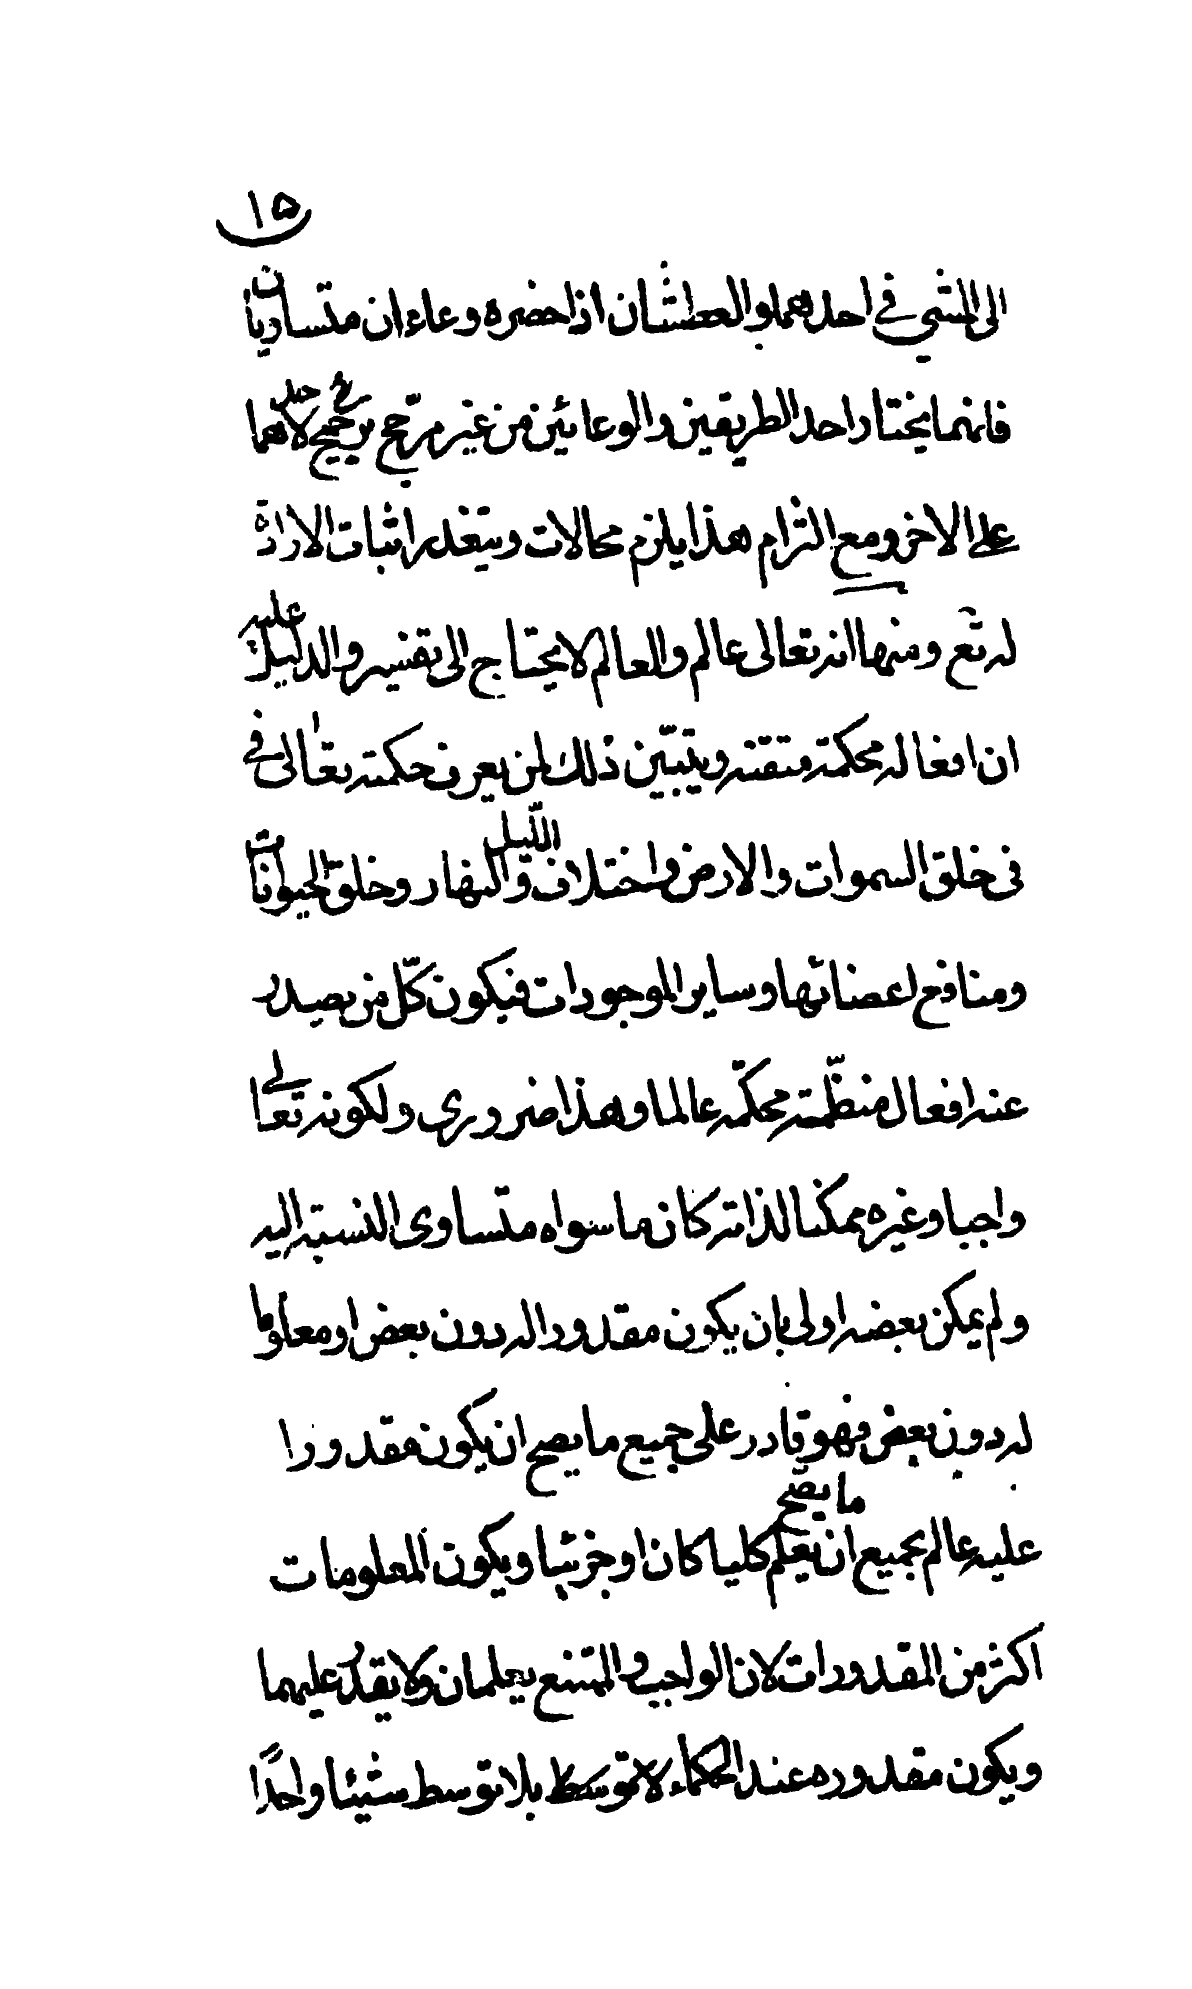 ١٥
الى المشي في احدهما والعطشان اذا حضره وعاءان متساويان
فانهما يختار احد الطريقين والوعائين من غير مرجح يرجح لاحدهما
على الاخر ومع التزام هذا يلزم محالات ويتعذر اثبات الارادة
له تع ومنها انه تعالى عالم والعالم لا يحتاج الى تفسير والدليل عليه
ان افعاله محكمة متقنة ويتبيّن ذلك لمن يعرف حكمته تعالى في
في خلق السموات والارض واختلاف الليل والنهار وخلق الحيوانات
ومنافع اعضائها وساير الموجودات فيكون كلّ من يصدر
عنه افعال منظّمة محكّمة عالما وهذا ضروري ولكونه تعالى
واجبا وغيره ممكنا لذاته كان ما سواه متساوى النسبة اليه
ولم يمكن بعضه اولى بان يكون مقدورا له دون بعض او معلوما
له دون بعض فهو قادر على جميع ما يصح ان يكون مقدورا
عليه عالم بجميع ما يصّح ان يعلم كليا كان او جزئيا ويكون المعلومات
اكثر من المقدورات لان الواجب والممتنع يعلمان ولا يقدر عليهما
ويكون مقدوره عند الحكماء لا بتوسط بلا توسط شيئا واحدًا